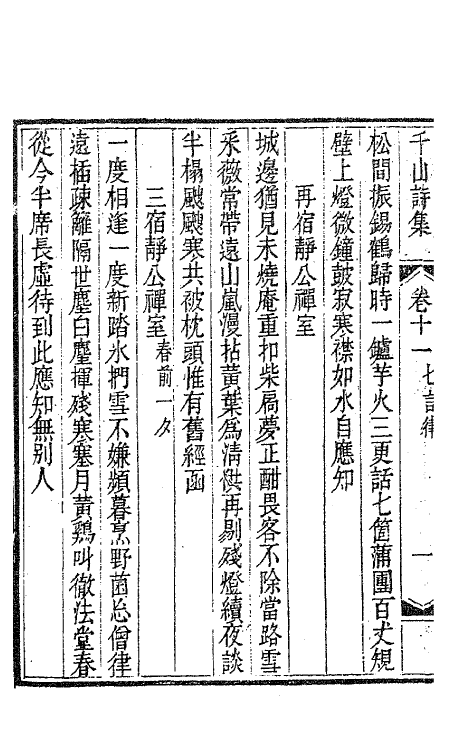 千山詩集 卷十一 七言律 一
松間振錫鶴歸時一鑪芋火三更話七箇蒲團百丈規
壁上燈微鐘鼓寂寒襟如水自應知
再宿靜公禪室
城邊猶見未燒庵重扣柴扃夢正酣畏客不除當路雪
采薇常帶遠山嵐漫拈黃葉爲清供再剔殘燈續夜談
半榻颼颼寒共被枕頭惟有舊經函
三宿靜公禪室春前一夕
一度相逢一度新踏氷捫雪不嫌頻暮烹野菌忘僧律
遠插疎籬隔世塵白麈揮殘寒塞月黃鷄叫徹法堂春
從今半席長虛待到此應知無別人